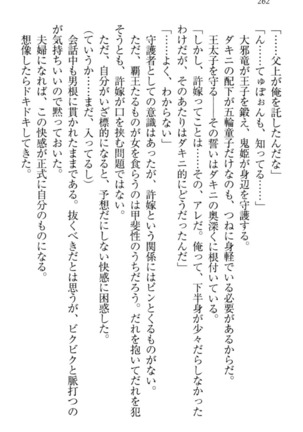 262
「……父上が俺を託したんだな」
「ん……てゅぽぉんも、知ってる……」
大邪竜が王子を鍛え、鬼姫が身辺を守護する。
ダキニの配下が五輪童子だけなのも、つねに身軽でいる必要があるからだ。
王太子を守る――その誓いはダキニの奥深くに根付いている。
「しかし、許嫁ってことは……その、アレだ。俺って、下半身が少々だらしない
わけだが、そのあたりはダキニ的にどうだったんだ」
「……よく、わからない」
守護者としての意識はあったが、許嫁という関係にはピンとくるものがない。
ただ、覇王たるもの女を食らうのは甲斐性のうちだろう。だれを抱いてだれを犯
そうとも、許嫁が口を挟む問題ではない。
ただ、自分がいざ標的になると、予想だにしない快感に困惑した。
（ていうか……まだ、入ってるし）
会話中も男根に貫かれたままである。抜くべきだとは思うが、ビクビクと脈打つの
が気持ちいいので黙っておいた。
夫婦になれれば、この快感が正式に自分のものになる。
想像したらドキドキしてきた。